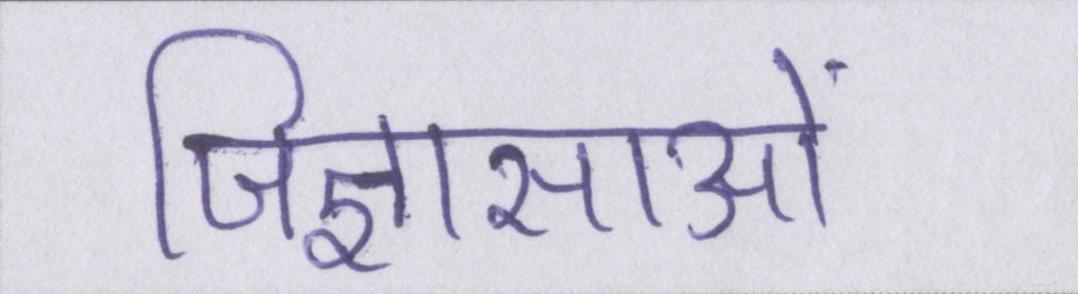 जिज्ञासाओं